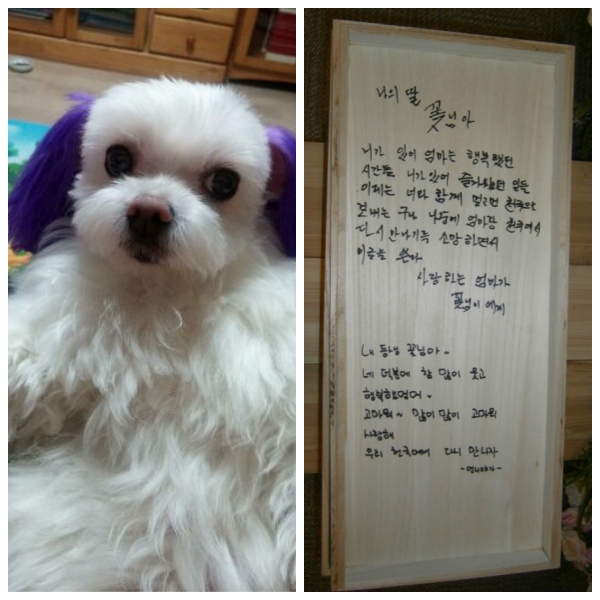 나의 딸
꽃님아
니가 있어 엄마는 행복했던
시간들 니가 있어 즐거웠던 일들
이제는 너와 함께 멀고먼 천국으로
보내는구나 나중에 엄마랑 천국에서
다시 만나기를 소망하면서
이글을 쓴다
사랑하는 엄마가
꽃님이에게
내 동생 꽃님아~
네 덕분에 참 많이 웃고
행복했었어.
고마워~ 많이 많이 고마워
사랑해
우리 천국에서 다시 만나자
-언니야가-